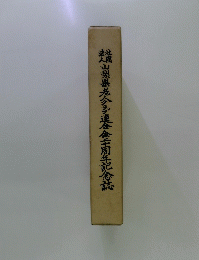 社団
法人
山梨県老人クラブ連合会二十周年記念誌